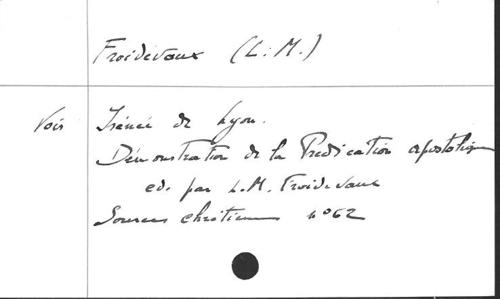 Froidevaux (L.M.)
Voir Irénée de Lyon.
Démonstration de la Prédication apostolique
ed. par L.M. Froidevaux
Sources chrétiennes n°62